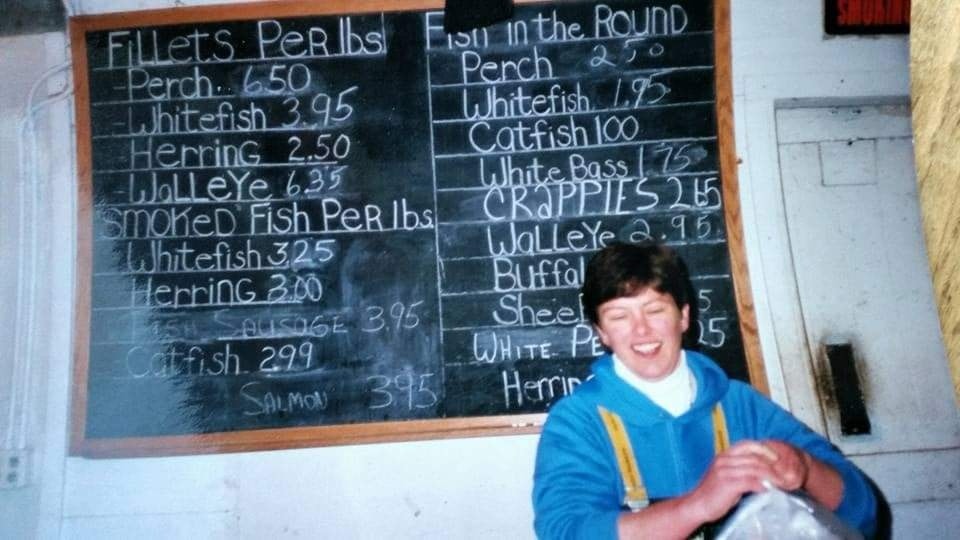 Fillets Per lbs
-Perch.. 6.50
-Whitefish 3.95
Herring 2.50
-Walleye 6.35
Smoked Fish Per lbs.
Whitefish 3.25
Herring 3.00
Fish Sausage 3.95
Catfish 2.99
Salmon 3.95
Fish in the Round
Perch 2.50
Whitefish 1.95
Catfish 100
White Bass 1.75
CRaPPIES 2.65
Walleye 2.95
Buffal
Shee 5
White Pe 25
Herrin
SMOKIN